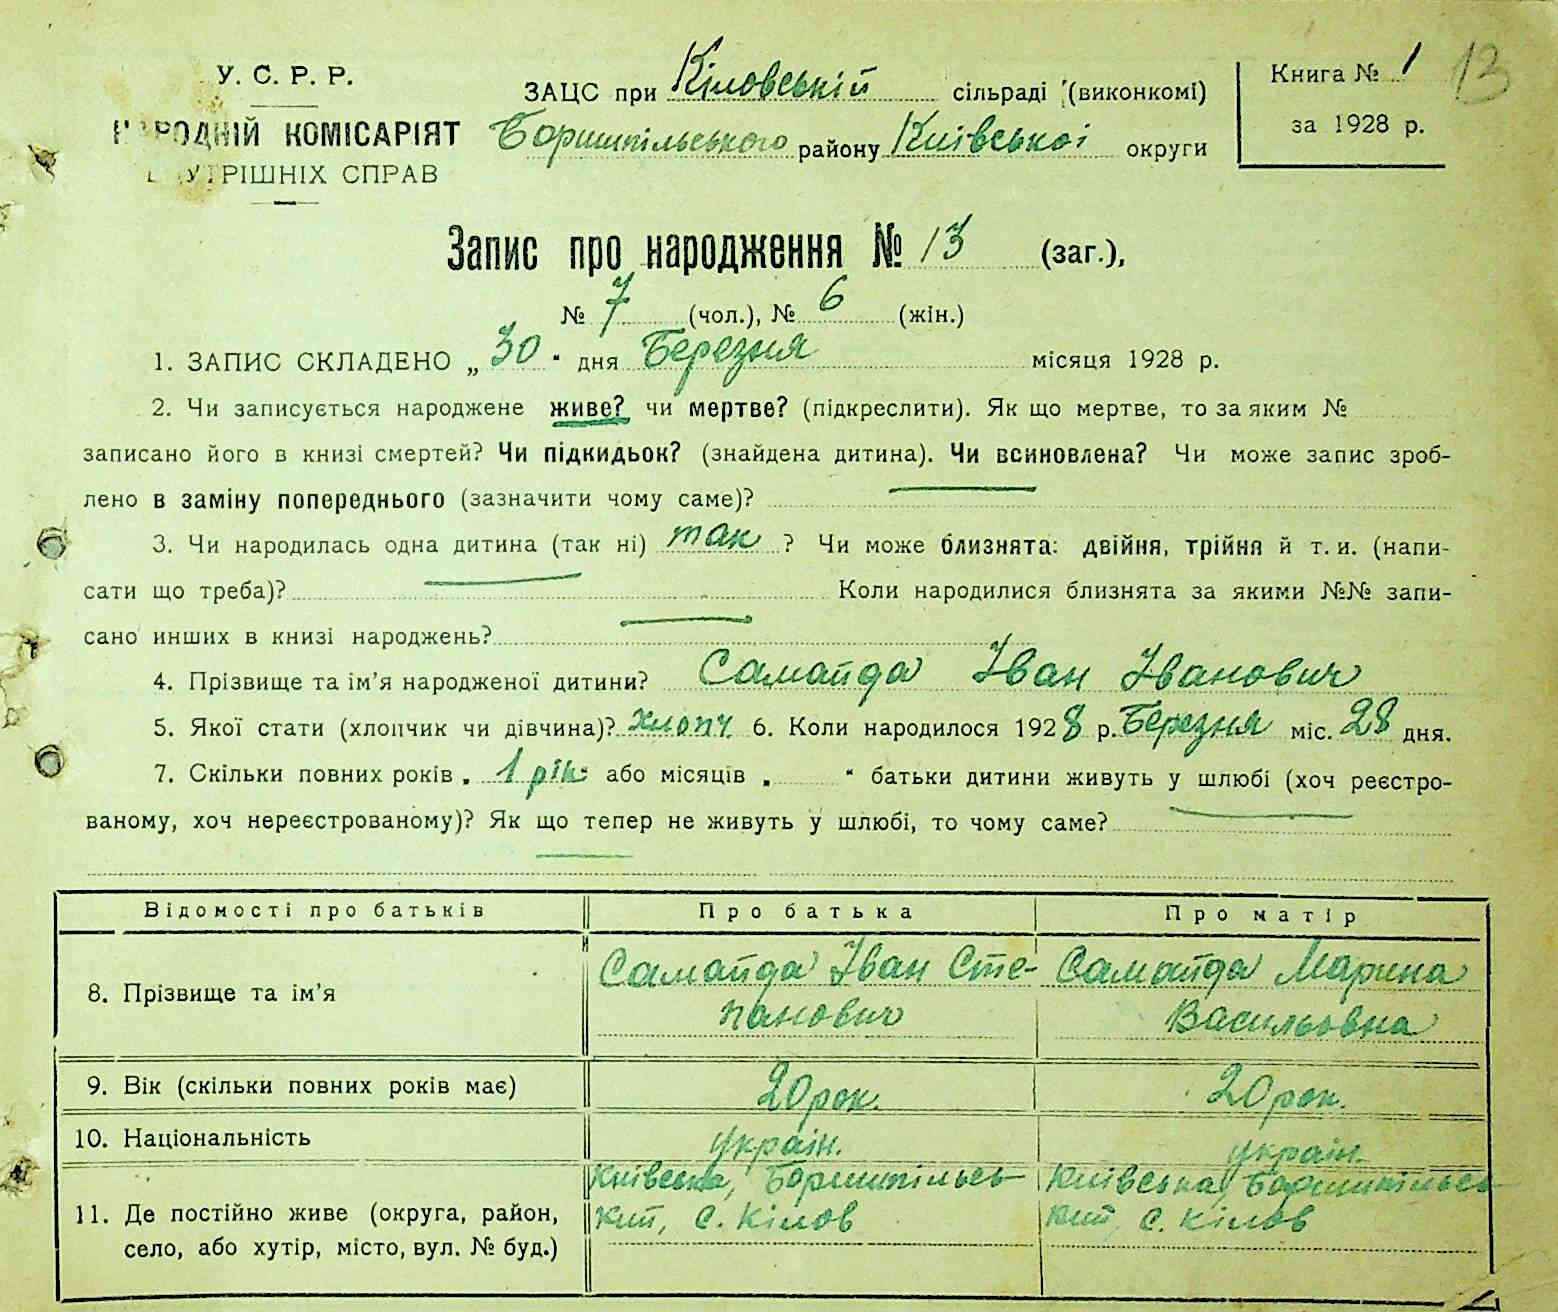 У. С. Р. Р.
НАРОДНІЙ КОМІСАРІЯТ
ВНУТРІШНІХ СПРАВ
ЗАЦС при Кіловській сільраді (виконкомі)
Боришпільського району Київської округи
Книга № 1
за 1928 р.
13
Запис про народження № 13 (заг.),
№ 7 (чол.), № 6 (жін.)
1. ЗАПИС СКЛАДЕНО „ 30 " дня Березня місяця 1928 р.
2. Чи записується народжене живе? чи мертве? (підкреслити). Як що мертве, то за яким №
записано його в книзі смертей? Чи підкидьок? (знайдена дитина). Чи всиновлена? Чи може запис зроб-
лено в заміну попереднього (зазначити чому саме)?
3. Чи народилась одна дитина (так ні) так ? Чи може близнята: двійня, трійня й т. и. (напи-
сати що треба)? Коли народилися близнята за якими №№ запи-
сано инших в книзі народжень?
4. Прізвище та ім'я народженої дитини? Самайда Іван Іванович
5. Якої стати (хлопчик чи дівчина)? хлопч. 6. Коли народилося 1928 р. Березня міс. 28 дня.
7. Скільки повних років „ 1 рік " або місяців „ " батьки дитини живуть у шлюбі (хоч реєстро-
ваному, хоч нереєстрованому)? Як що тепер не живуть у шлюбі, то чому саме?
Відомості про батьків Про батька Про матір
8. Прізвище та ім'я Самайда Іван Сте- Самайда Марина
панович Васильовна
9. Вік (скільки повних років має) 20 рок. 20 рок.
10. Національність україн. україн.
11. Де постійно живе (округа, район,
село, або хутір, місто, вул. № буд.)
Київська, Боришпільсь-
кий, с. Кілов
Київська, Боришпільсь-
кий, с. Кілов